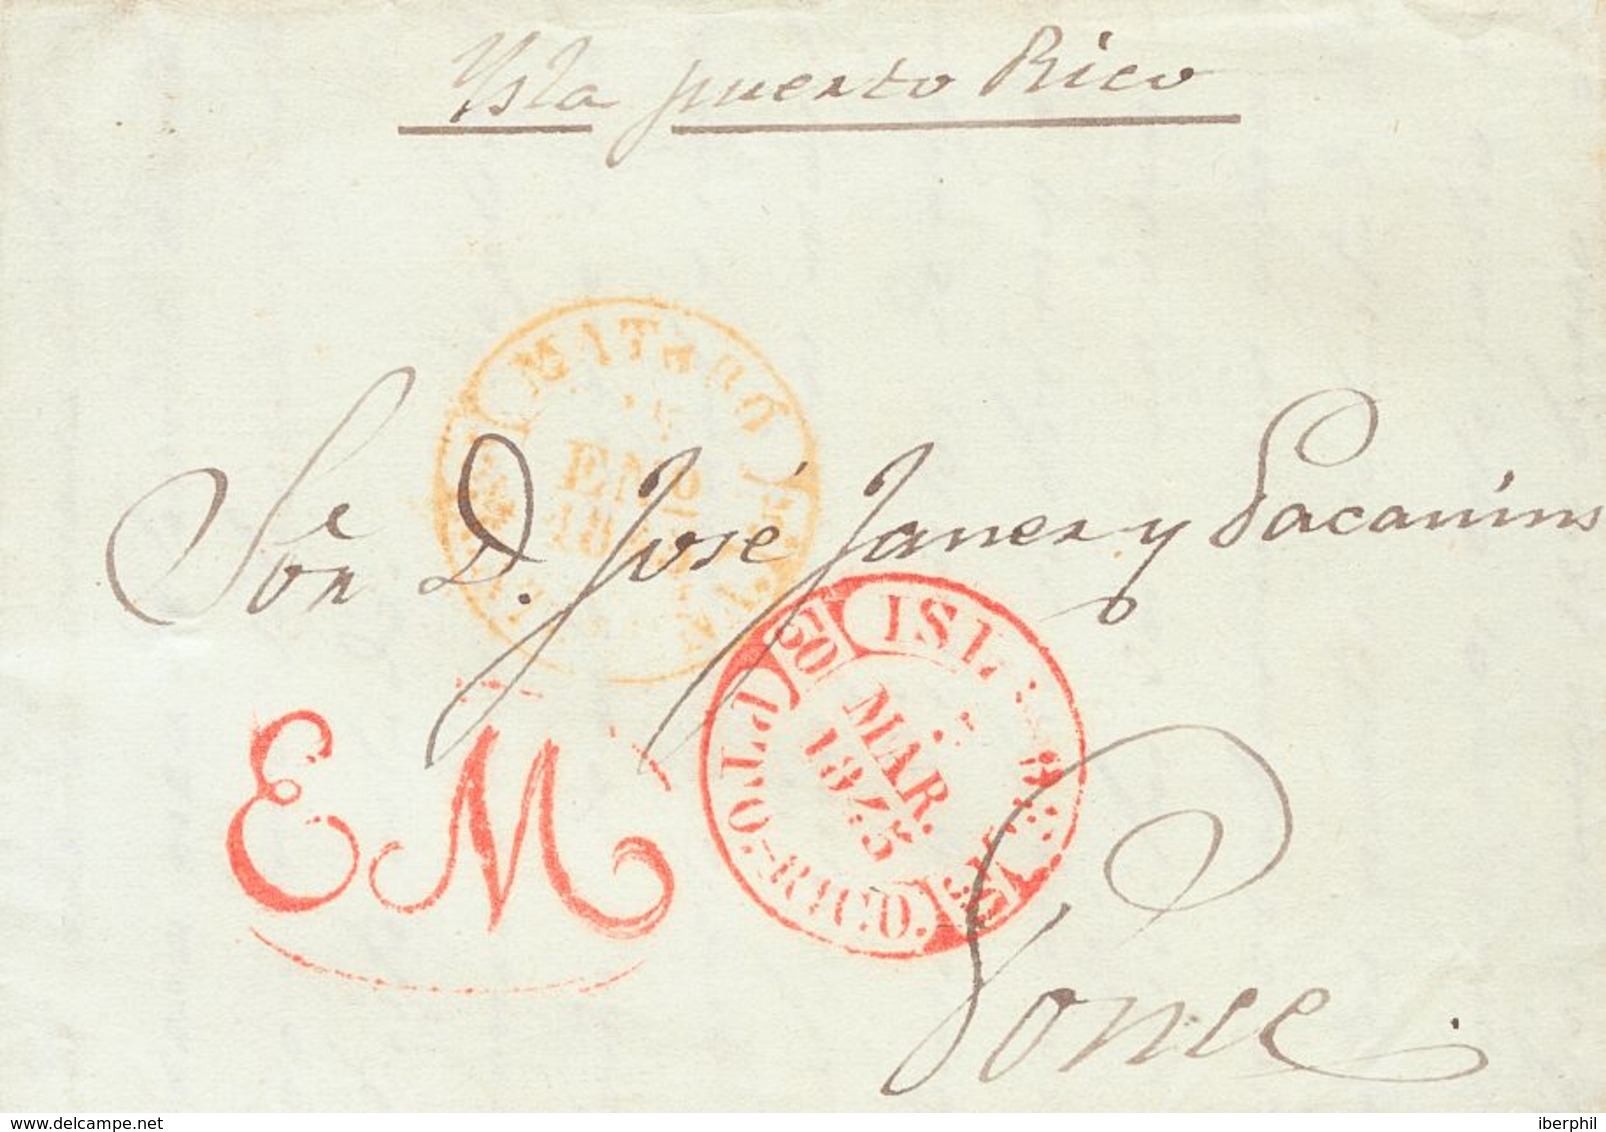 Ysla puerto Rico
MATARÓ
ENO
Sor. D. José Janer y Pacanins
ISLA
MAR.
1845
RICO.
EM
Ponce
delcampe.net
iberphil